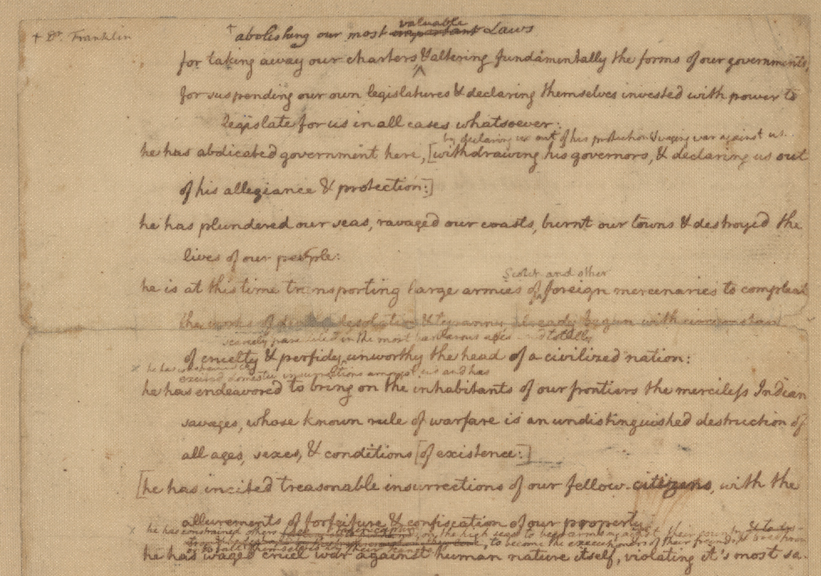 + Dr. Franklin
+abolishing our most important valuable Laws
for taking away our charters & altering fundamentally the forms of our governments,
for suspending our own legislatures & declaring themselves invested with power to
legislate for us in all cases whatsoever:
by declaring us out of his protection & waging war against us.
he has abdicated government here, [withdrawing his governors, & declaring us out
of his allegiance & protection:]
he has plundered our seas, ravaged our coasts, burnt our towns & destroyed the
lives of our people:
Scotch and other
he is at this time transporting large armies of foreign mercenaries to compleat
the works of death desolation & tyranny already begun with circumstances
scarcely paralleled in the most barbarous ages totally
of cruelty & perfidy unworthy the head of a civilized nation:
x he has
excited domestic insurrections amongst us and has
he has endeavored to bring on the inhabitants of our frontiers the merciless Indian
savages, whose known rule of warfare is an undistinguished destruction of
all ages, sexes, & conditions [of existence:]
[he has incited treasonable insurrections of our fellow-citizens, with the
allurements of forfeiture & confiscation of our property
x he has constrained others on the high seas to bear arms against their
to become the executioners of their
he has waged cruel war against human nature itself, violating it's most sa-